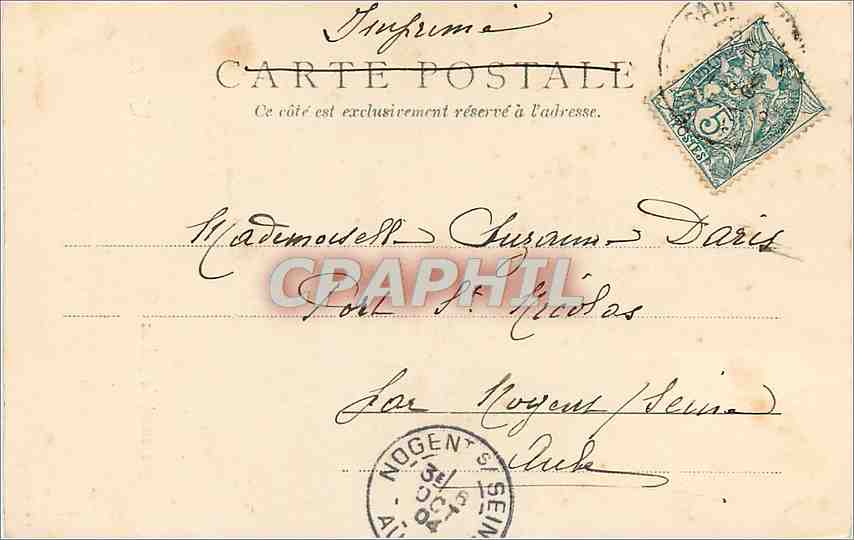 Imprimé
CARTE POSTALE
Ce côté est exclusivement réservé à l'adresse.
5
POSTES
Mademoiselle Suzanne Daris
CPRAPHIL
Port St Nicolas
par Nogent s/Seine
Aube
NOGENT S/ SEINE
3E
6
OCT
04